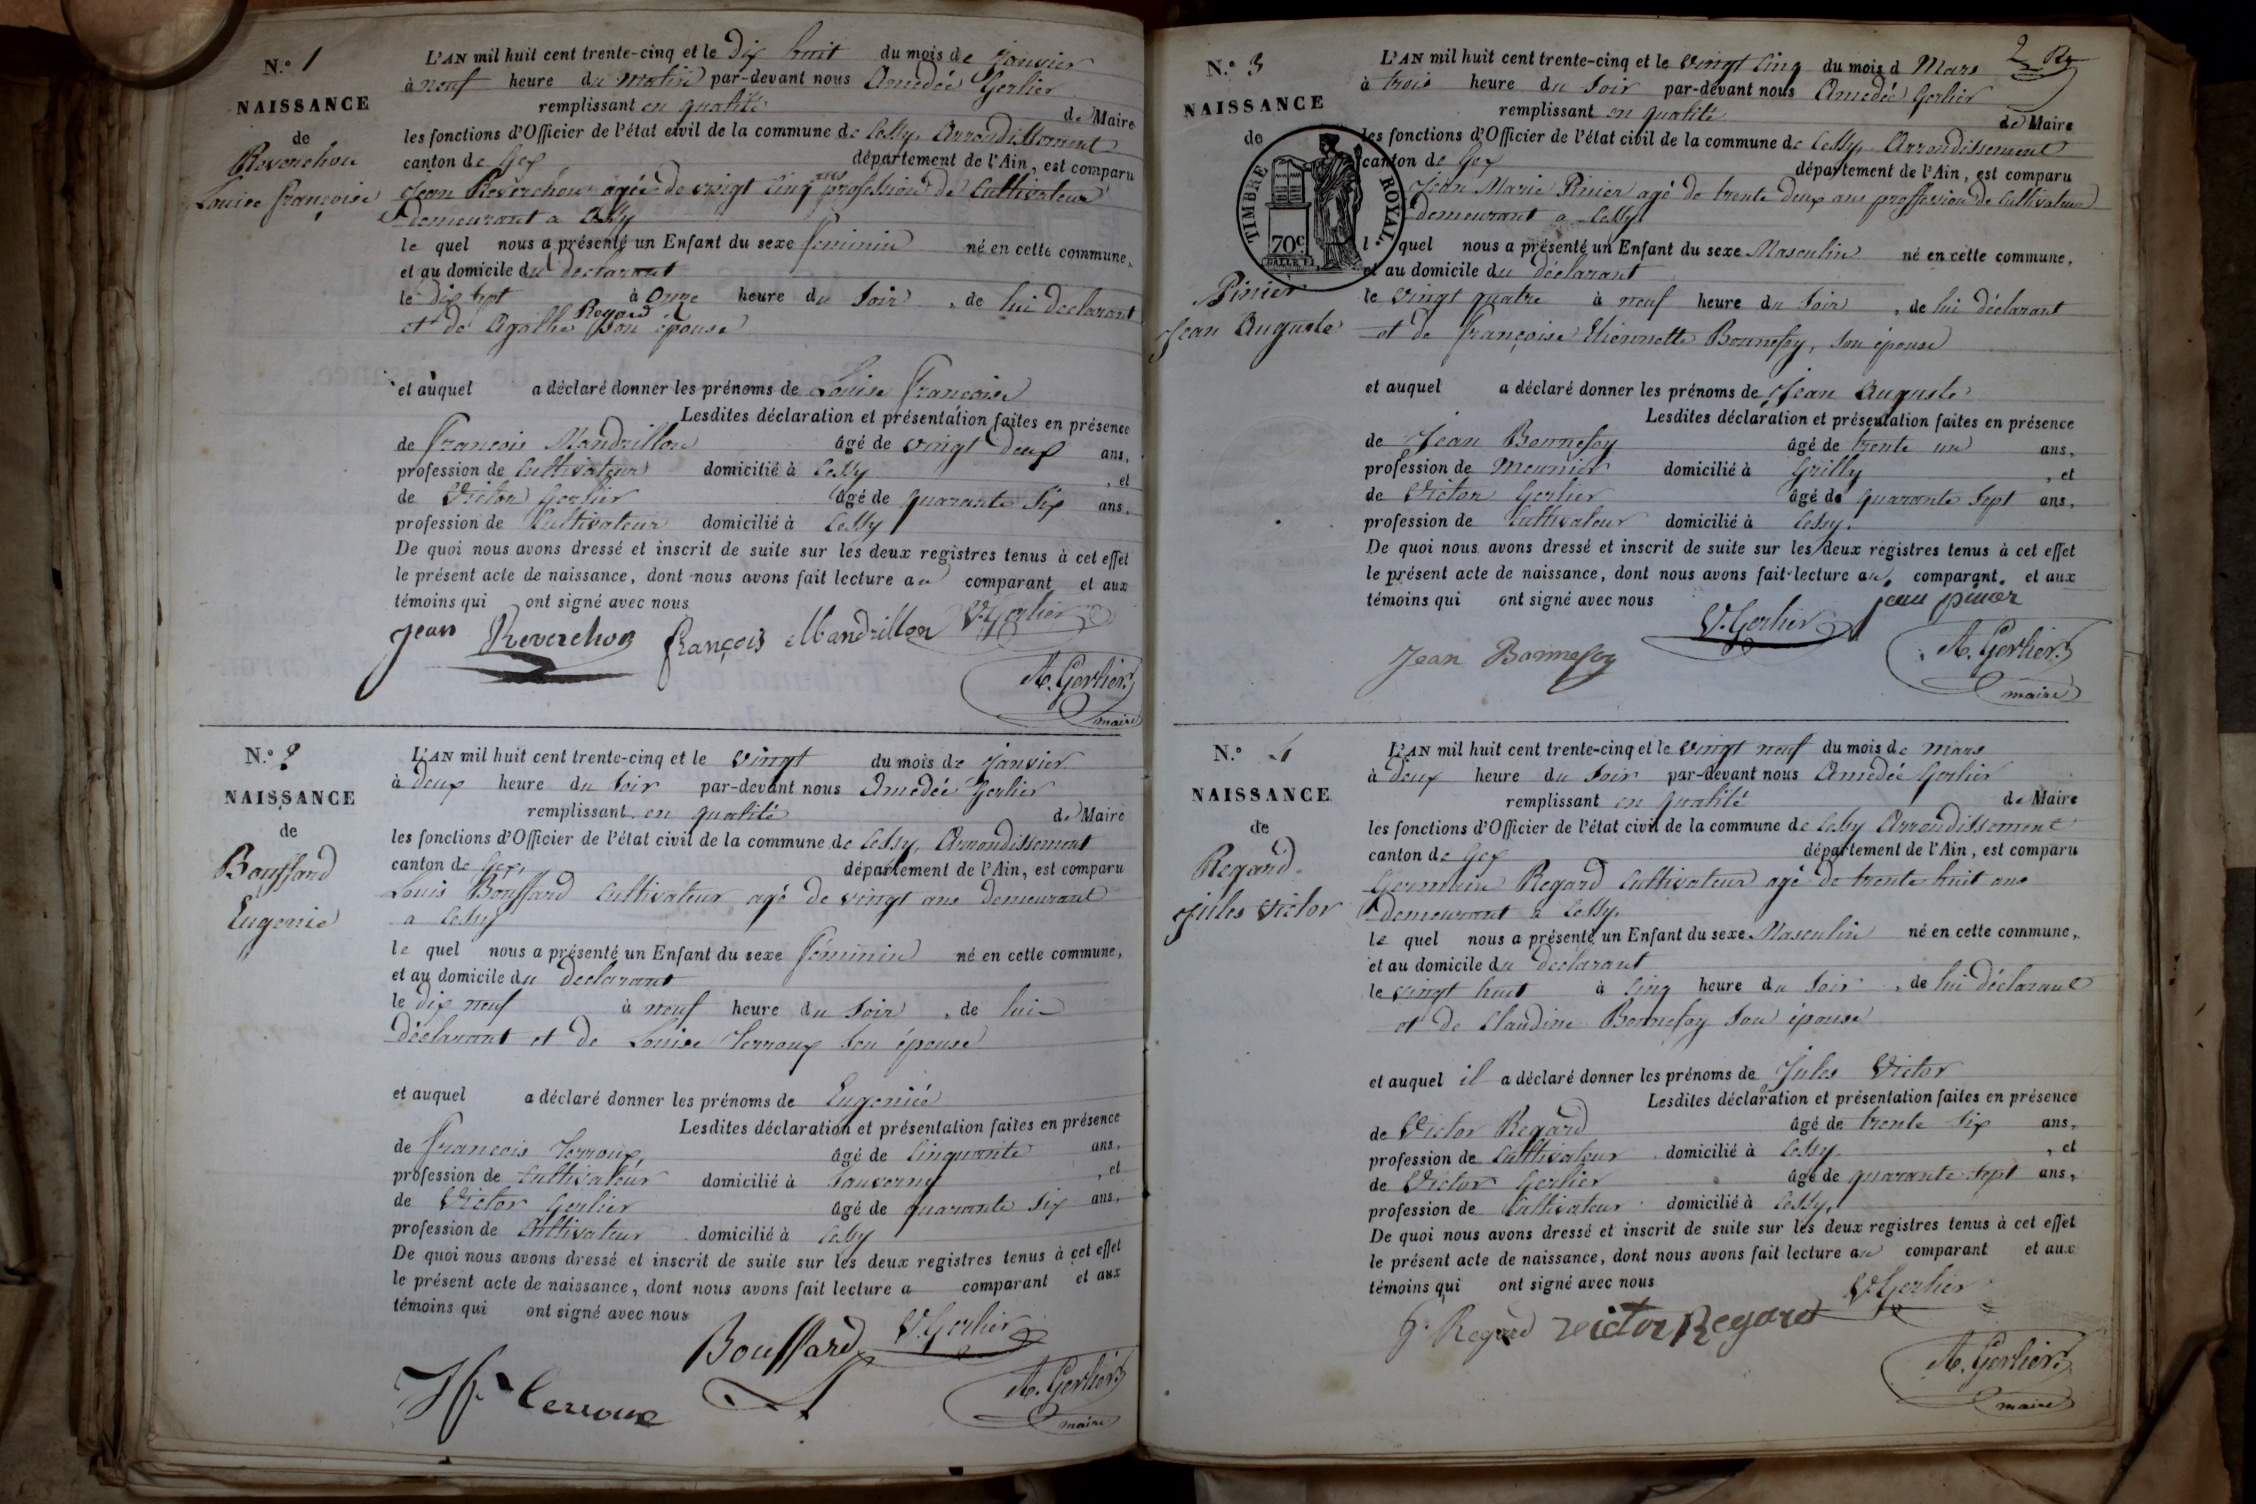 N.º 1
NAISSANCE
de
Reverchon
Louise françoise
L'AN mil huit cent trente-cinq et le dix huit du mois de janvier
à neuf heure du matin par-devant nous Amedée Gerlier
remplissant en qualité de Maire
les fonctions d'Officier de l'état civil de la commune de Cessy, Arrondissement
canton de Gex département de l'Ain, est comparu
Jean Reverchon agée de vingt cinq ans profession de Cultivateur
demeurant a Cessy
le quel nous a présenté un Enfant du sexe féminin né en cette commune,
et au domicile du declarant
le dix sept à onze heure du Soir, de lui declarant
et de Agathe Regard son épouse
et auquel a déclaré donner les prénoms de Louise françoise
Lesdites déclaration et présentation faites en présence
de françois Mandrillon âgé de vingt deux ans,
profession de Cultivateur domicilié à Cessy, et
de Victor Gerlier âgé de quarante Six ans,
profession de Cultivateur domicilié à Cessy
De quoi nous avons dressé et inscrit de suite sur les deux registres tenus à cet effet
le présent acte de naissance, dont nous avons fait lecture au comparant et aux
témoins qui ont signé avec nous
Jean Reverchon françois Mandrillon V. Gerlier
A. Gerlier
maire
N.º 2
NAISSANCE
de
Bouffard
Eugenie
L'AN mil huit cent trente-cinq et le vingt du mois de janvier
à deux heure du Soir par-devant nous Amedée Gerlier
remplissant en qualité de Maire
les fonctions d'Officier de l'état civil de la commune de Cessy, Arrondissement
canton de Gex, département de l'Ain, est comparu
Louis Bouffard Cultivateur agé de vingt ans demeurant
a Cessy
le quel nous a présenté un Enfant du sexe féminin né en cette commune,
et au domicile du declarant
le dix neuf à neuf heure du Soir, de lui
déclarant et de Louise Terroux son épouse
et auquel a déclaré donner les prénoms de Eugenie
Lesdites déclaration et présentation faites en présence
de françois Terroux, âgé de Cinquante ans,
profession de Cultivateur domicilié à Sauverny, et
de Victor Gerlier âgé de quarante Six ans,
profession de Cultivateur domicilié à Cessy
De quoi nous avons dressé et inscrit de suite sur les deux registres tenus à cet effet
le présent acte de naissance, dont nous avons fait lecture a comparant et aux
témoins qui ont signé avec nous
Bouffard V. Gerlier
Terroux
A. Gerlier
maire
2
N.º 3
NAISSANCE
de
TIMBRE ROYAL
70c
Pinier
Jean Auguste
L'AN mil huit cent trente-cinq et le vingt Cinq du mois d Mars
à trois heure du Soir par-devant nous Amedée Gerlier
remplissant en qualité de Maire
les fonctions d'Officier de l'état civil de la commune de Cessy, Arrondissement
canton de Gex département de l'Ain, est comparu
Jean Marie Pinier agé de trente deux ans proffession de Cultivateur
demeurant a Cessy
l quel nous a présenté un Enfant du sexe Masculin né en cette commune,
et au domicile du déclarant
le vingt quatre à neuf heure du Soir, de lui déclarant
et de françoise Etiennette Bonnefoy, son épouse
et auquel a déclaré donner les prénoms de Jean Auguste
Lesdites déclaration et présentation faites en présence
de Jean Bonnefoy âgé de trente un ans,
profession de Meunier domicilié à Grilly, et
de Victor Gerlier âgé de quarante Sept ans,
profession de Cultivateur domicilié à Cessy.
De quoi nous avons dressé et inscrit de suite sur les deux registres tenus à cet effet
le présent acte de naissance, dont nous avons fait lecture au comparant et aux
témoins qui ont signé avec nous
V. Gerlier jean pinier
Jean Bonnefoy
A. Gerlier
maire
N.º 4
NAISSANCE
de
Regard
Jules Victor
L'AN mil huit cent trente-cinq et le vingt neuf du mois de mars
à deux heure du Soir par-devant nous Amedée Gerlier
remplissant en qualité de Maire
les fonctions d'Officier de l'état civil de la commune de Cessy Arrondissement
canton de Gex département de l'Ain, est comparu
Germain Regard Cultivateur agé de trente huit ans
demeurant a Cessy.
le quel nous a présenté un Enfant du sexe Masculin né en cette commune,
et au domicile du declarant
le vingt huit à Cinq heure du Soir, de lui déclarant
et de Claudine Bonnefoy son épouse
et auquel il a déclaré donner les prénoms de Jules Victor
Lesdites déclaration et présentation faites en présence
de Victor Regard âgé de trente Six ans,
profession de Cultivateur domicilié à Cessy, et
de Victor Gerlier âgé de quarante Sept ans,
profession de Cultivateur domicilié à Cessy,
De quoi nous avons dressé et inscrit de suite sur les deux registres tenus à cet effet
le présent acte de naissance, dont nous avons fait lecture au comparant et aux
témoins qui ont signé avec nous
V. Gerlier
g. Regard victor Regard
A. Gerlier
maire